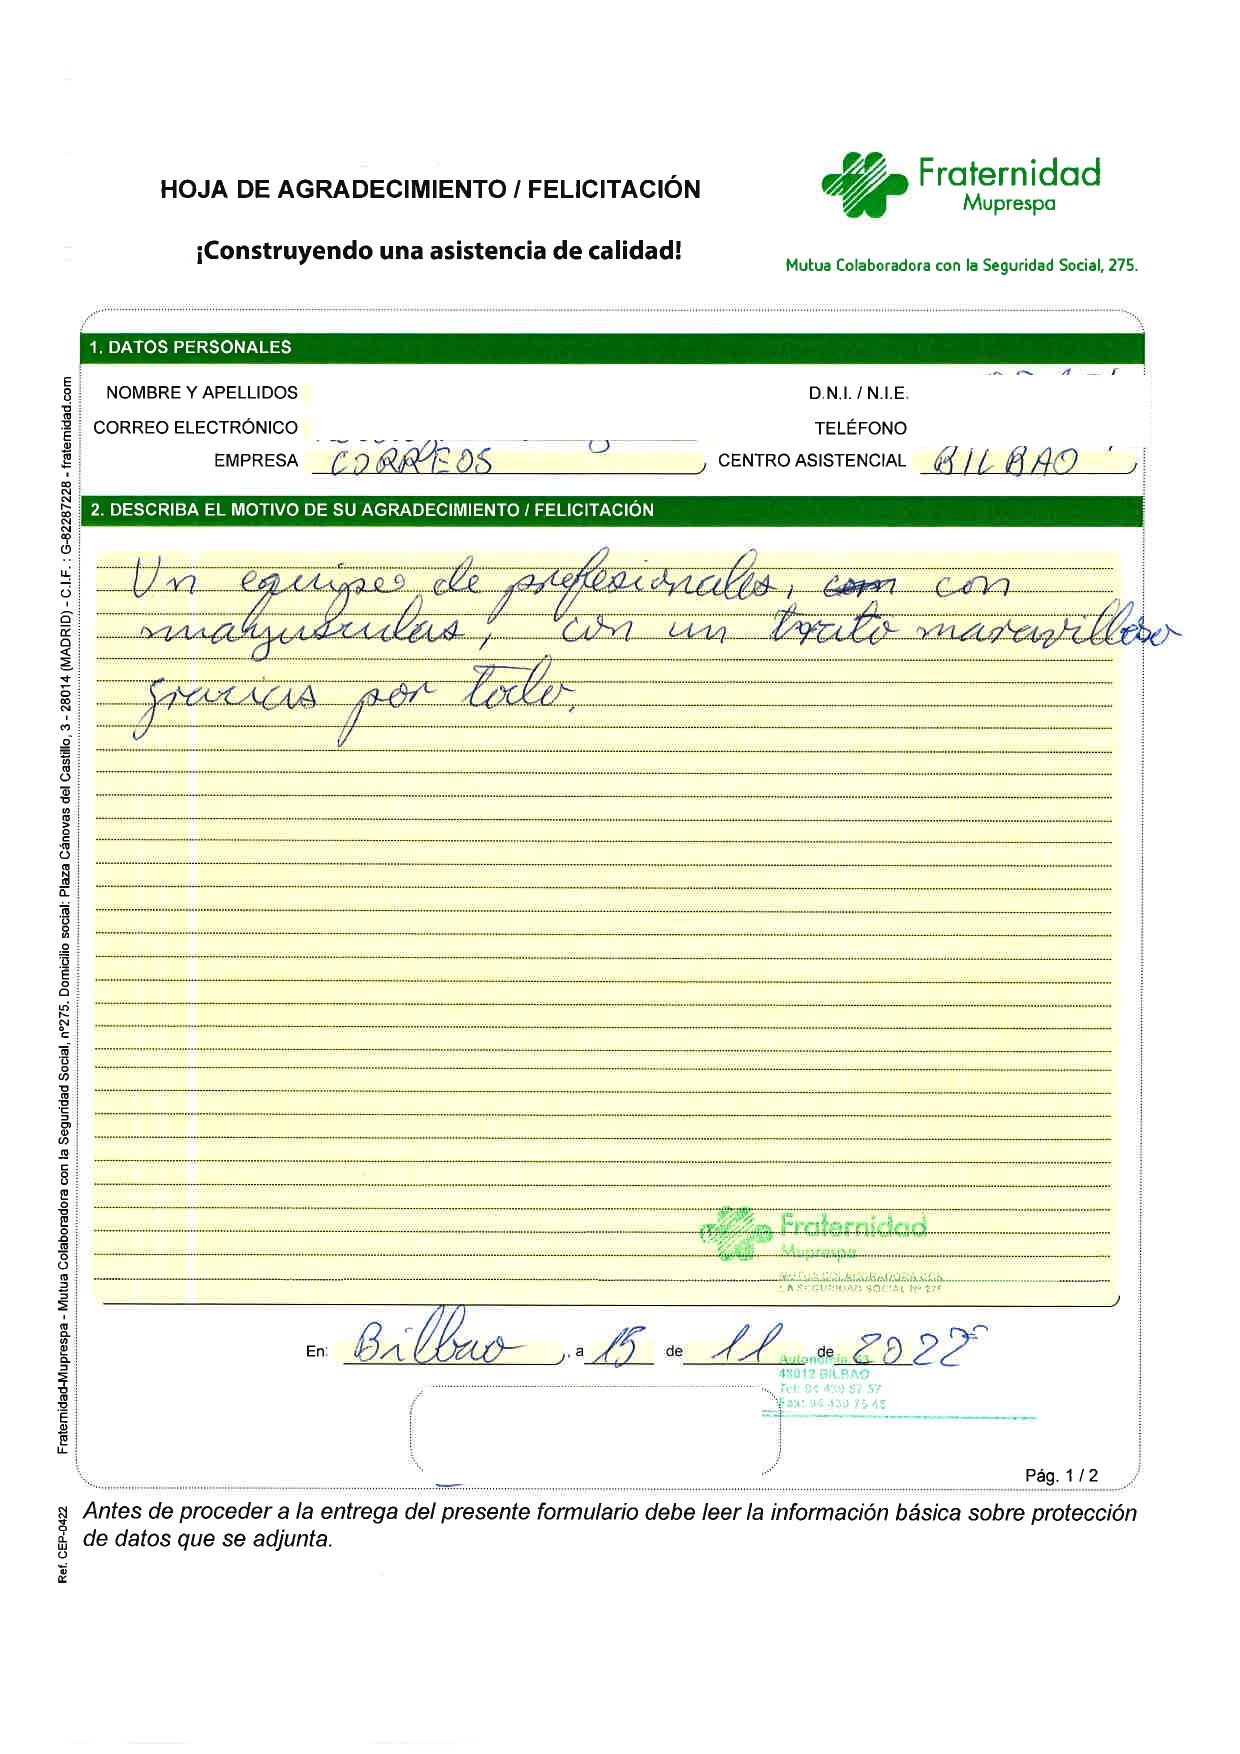 HOJA DE AGRADECIMIENTO / FELICITACIÓN
¡Construyendo una asistencia de calidad!
Fraternidad
Muprespa
Mutua Colaboradora con la Seguridad Social, 275.
1. DATOS PERSONALES
NOMBRE Y APELLIDOS
D.N.I. / N.I.E.
CORREO ELECTRÓNICO
TELÉFONO
EMPRESA CORREOS
CENTRO ASISTENCIAL BILBAO
2. DESCRIBA EL MOTIVO DE SU AGRADECIMIENTO / FELICITACIÓN
Un equipo de profesionales, com con
mayusculas, con un trato maravilloso
gracias por todo.
Fraternidad
Muprespa
MUTUA COLABORADORA CON
LA SEGURIDAD SOCIAL Nº 275
En: Bilbao, a 15 de 11 de 2022
Autonomía, 63
48012 BILBAO
Tel: 94 439 67 57
Fax: 94 439 75 45
Pág. 1 / 2
Antes de proceder a la entrega del presente formulario debe leer la información básica sobre protección
de datos que se adjunta.
Fraternidad-Muprespa - Mutua Colaboradora con la Seguridad Social, nº275. Domicilio social: Plaza Cánovas del Castillo, 3 - 28014 (MADRID) - C.I.F. : G-82287228 - fraternidad.com
Ref. CEP-0422